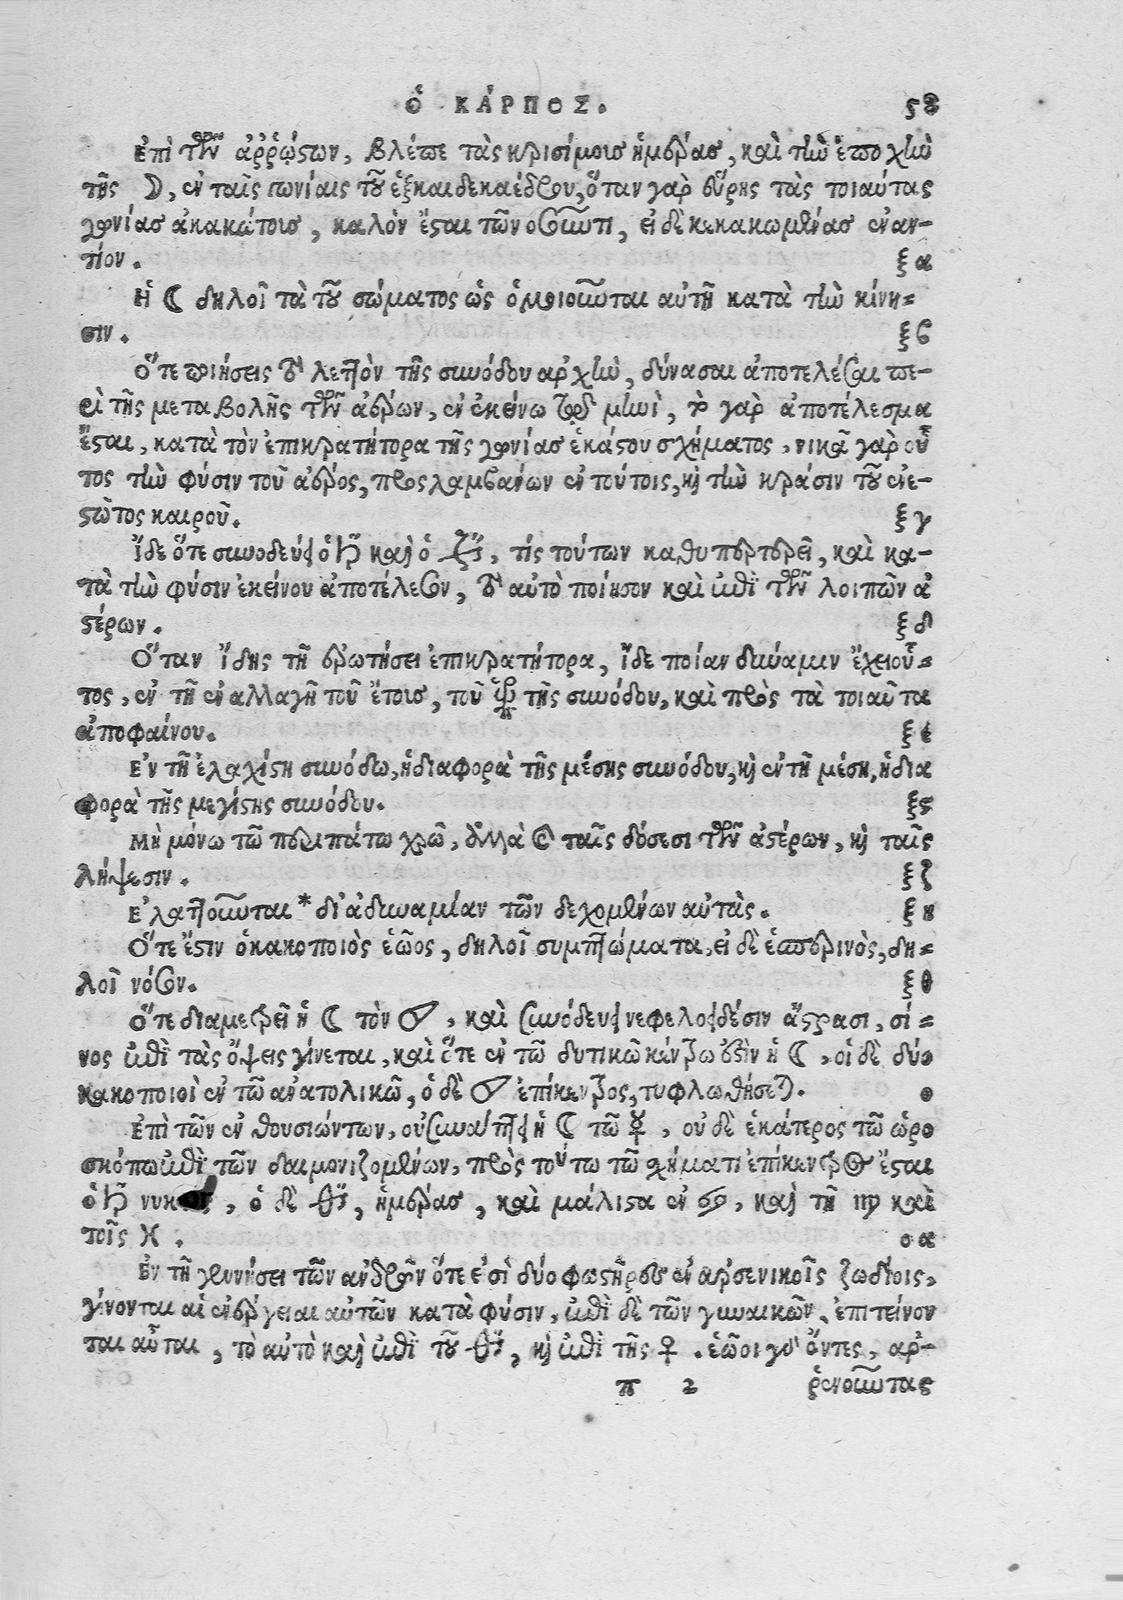 Ὁ ΚΆΡΠΟΣ. 58
Ἐπὶ τῶν ἀῤῥώστων, βλέπε τὰς κρισίμους ἡμέρας, καὶ τὴν ἐποχὴν
τῆς ☽, ἐν ταῖς γωνίαις τοῦ ἑξκαιδεκαέδρου, ὅταν γὰρ εὕρῃς τὰς τοιαύτας
γωνίας ἀκακώτους, καλὸν ἔσται τῷ νοσοῦντι, εἰ δὲ κεκακωμένας ἐναν-
τίον. ξα
Ἡ ☾ δηλοῖ τὰ τοῦ σώματος ὡς ὁμοιοῦται αὐτῇ κατὰ τὴν κίνη-
σιν. ξβ
Ὅτε ποιήσεις τὸ λεπτὸν τῆς συνόδου ἀρχὴν, δύνασαι ἀποτελέσαι πε-
ρὶ τῆς μεταβολῆς τῶν ἀέρων, ἐν ἐκείνῳ τῷ μηνὶ, τὸ γὰρ ἀποτέλεσμα
ἔσται, κατὰ τὸν ἐπικρατήτορα τῆς γωνίας ἑκάστου σχήματος, νικᾷ γὰρ οὗ
τος τὴν φύσιν τοῦ ἀέρος, προσλαμβανων ἐν τούτοις, καὶ τὴν κράσιν τοῦ ἐνε-
στῶτος καιροῦ. ξγ
Ἴδε ὅτε συνοδεύει ὁ ♄ καὶ ὁ ♃, τίς τούτων καθυπερτερεῖ, καὶ κα-
τὰ τὴν φύσιν ἐκείνου ἀποτέλεσον, τὸ αὐτὸ ποίησον καὶ ἐπὶ τῶν λοιπῶν ἀ
στέρων. ξδ
Ὅταν ἴδῃς τῇ ἐρωτήσει ἐπικρατήτορα, ἴδε ποίαν δύναμιν ἔχει οὗ-
τος, ἐν τῇ ἐναλλαγῇ τοῦ ἔτους, τοῦ τῆς συνόδου, καὶ πρὸς τὰ τοιαῦτα
ἀποφαίνου. ξε
Ἐν τῇ ἐλαχίστῃ συνόδῳ, ἡ διαφορὰ τῆς μέσης συνόδου, καὶ ἐν τῇ μέσῃ, ἡ δια
φορὰ τῆς μεγίστης συνόδου. ξς
Μὴ μόνῳ τῷ περιπάτῳ χρῶ, ἀλλὰ καὶ ταῖς δόσεσι τῶν ἀστέρων, καὶ ταῖς
λήψεσιν. ξζ
Ἐλαττοῦνται * δι' ἀδυναμίαν τῶν δεχομένων αὐτάς. ξη
Ὅτε ἔστιν ὁ κακοποιὸς ἑῷος, δηλοῖ συμπτώματα, εἰ δὲ ἑσπερινὸς, δη-
λοῖ νόσον. ξθ
Ὅτε διαμετρεῖ ἡ ☾ τὸν ♂, καὶ συνόδευει νεφελοειδέσιν ἄστρασι, σί-
νος ἐπὶ τὰς ὄψεις γίνεται, καὶ ὅτε ἐν τῷ δυτικῷ κέντρῳ ἐστὶν ἡ ☾, οἱ δὲ δύο
κακοποιοὶ ἐν τῷ ἀνατολικῷ, ὁ δὲ ♂ ἐπίκεντρος, τυφλωθήσεται. ο
Ἐπὶ τῶν ἐνθουσιώντων, οὐ συνάπτει ἡ ☾ τῷ ☿, οὐ δὲ ἑκάτερος τῷ ὡρο
σκόπῳ ἐπὶ τῶν δαιμονιζομένων, πρὸς τούτῳ τῷ χήματι ἐπίκεντρος ἔσται
ὁ ♄ , ὁ δὲ ♂, ἡμέρας, καὶ μάλιστα ἐν ♋, καὶ τῇ ♍ καὶ
τοῖς ♓. οα
Ἐν τῇ γεννήσει τῶν ἀνδρῶν ὅτε εἰσὶ δύο φωστῆρες ἐν ἀρσενικοῖς ζωδίοις,
γίνονται αἱ ἐνέργειαι αὐτῶν κατὰ φύσιν, ἐπὶ δὲ τῶν γυναικῶν, ἐπιτείνον
ται αὗται, τὸ αὐτὸ καὶ ἐπὶ τοῦ ♂, καὶ ἐπὶ τῆς ♀. ἑῷοι γὰρ ὄντες, ἀῤ-
π 2 ῥενοῦντας